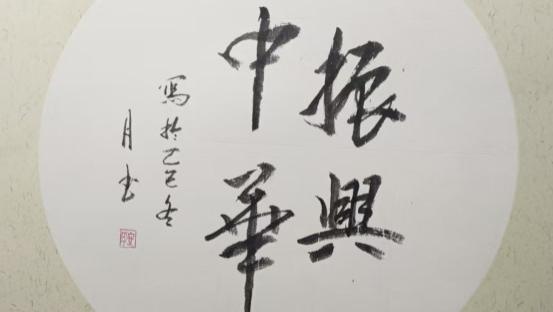 振興
中華
寫於乙巳冬
月玉